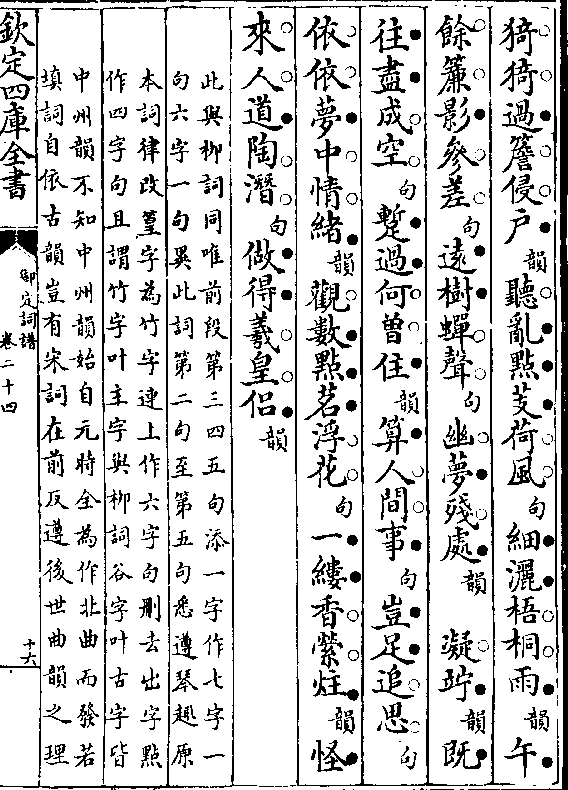 猗猗過簷侵户韻聽亂點芰荷風句細灑梧桐雨韻午
餘簾影參差句遠樹蟬聲句幽夢殘處韻 凝竚韻既
往盡成空句蹔過何曾住韻算人間事句豈足追思句
依依夢中情緒韻觀數點茗浮花句一縷香縈炷韻怪
來人道陶潛句做得羲皇侣韻
此與柳詞同唯前段第三四五句添一字作七字一
句六字一句異此詞第二句至第五句悉遵琴趣原
本詞律改篁字為竹字連上作六字句刪去出字點
作四字句且謂竹字叶主字與柳詞谷字叶古字皆
中州韻不知中州韻始自元時全為作北曲而發若
填詞自依古韻豈有宋詞在前反遵後世曲韻之理
欽定四庫全書
御定詞譜
卷二十四
十六